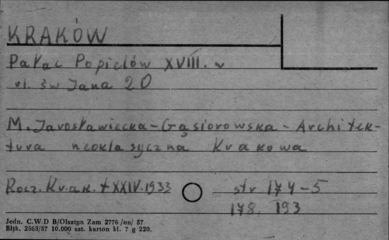 KRAKÓW
Pałac Popielów XVIII. w
ul. św Jana 20
M. Jarosławiecka-Gąsiorowska - Architek-
tura neoklasyczna Krakowa
Rocz. Krak. t XXIV. 1933 str 174-5
178, 193
Jedn. C.W.D B/Olsztyn Zam 2776 /on/ 57
Błpk. 2563/57 10.000 szt. karton kl. 7 g 220.